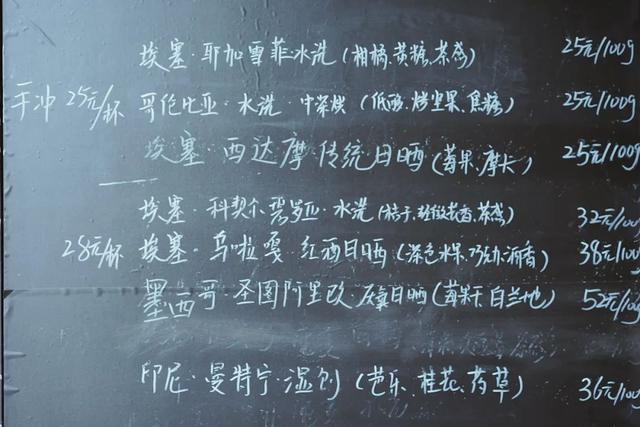 埃塞·耶加雪菲·水洗（柑橘、黄糖、茶感） 25元/100g
手冲 25元/杯 哥伦比亚·水洗·中深烘（低酸、烤坚果、焦糖） 25元/100g
埃塞·西达摩 传统日晒（莓果、摩卡） 25元/100g
埃塞·科契尔 碧罗亚·水洗（桔子、轻微花香、茶感） 32元/100
28元/杯 埃塞·乌啦嘎·红酒日晒（深色水果、巧克力、酒香） 38元/100
墨西哥·圣图阿里欧 厌氧日晒（莓果干、白兰地） 52元/100
印尼·曼特宁·湿刨（芭乐、桂花、药草） 36元/100